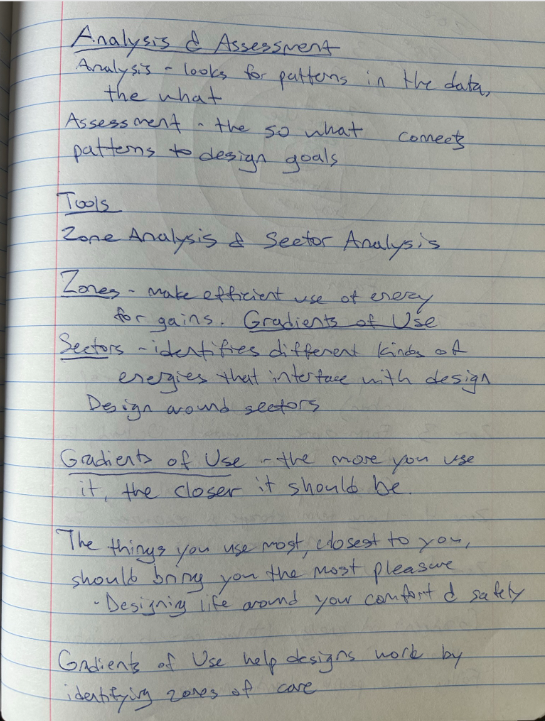 Analysis & Assessment
Analysis - looks for patterns in the data,
the what
Assessment - the so what connects
patterns to design goals
Tools
Zone Analysis & Sector Analysis
Zones - make efficient use of energy
for gains. Gradients of Use
Sectors - identifies different kinds of
energies that interface with design
Design around sectors
Gradients of Use - the more you use
it, the closer it should be.
The things you use most, closest to you,
should bring you the most pleasure
- Designing life around your comfort & safety
Gradients of Use help designs work by
identifying zones of care